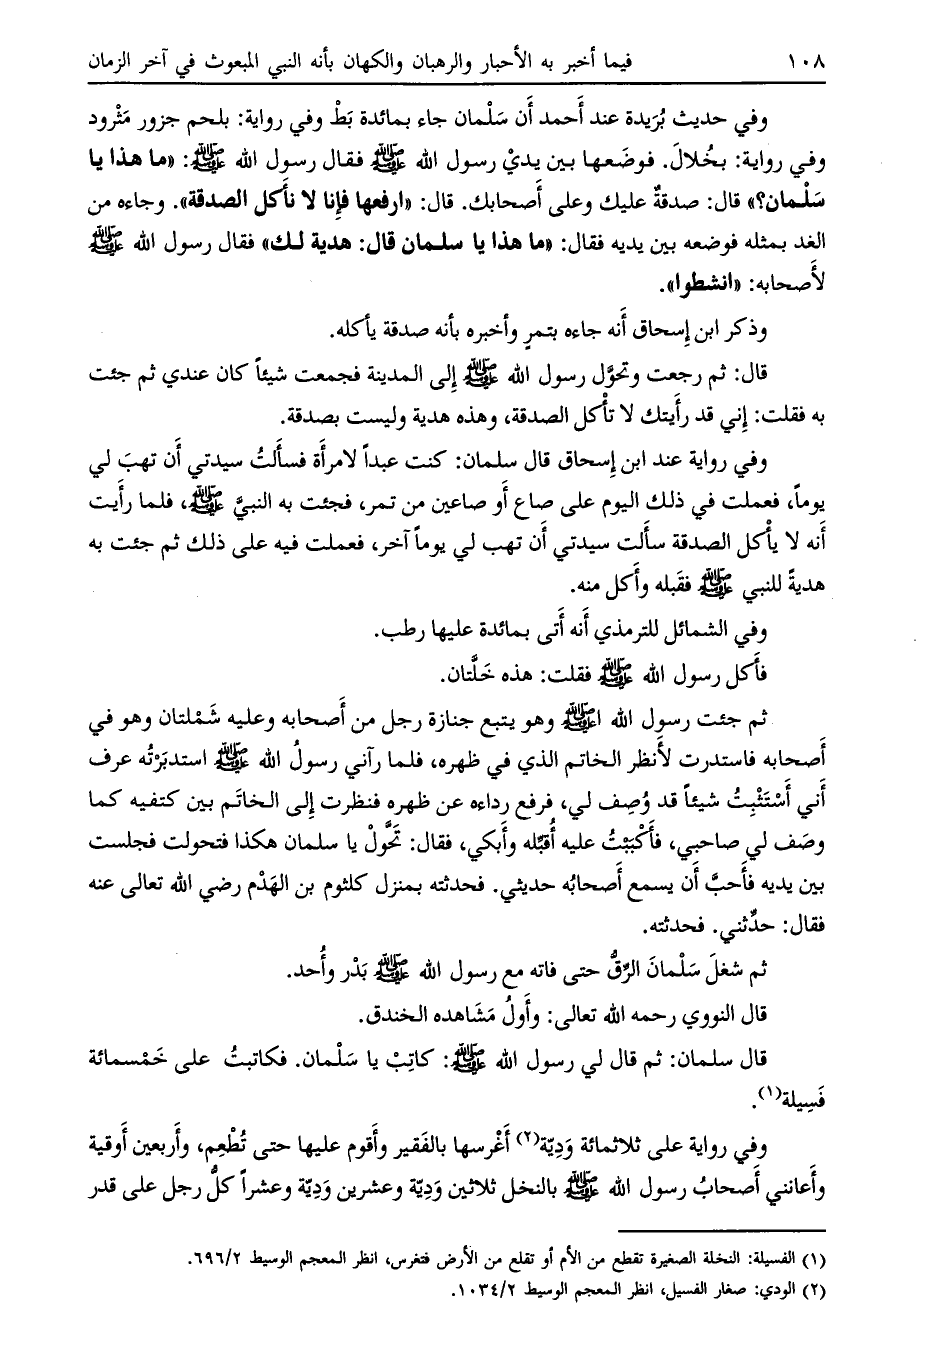 ١٠٨ فيما أخبر به الأحبار والرهبان والكهان بأنه النبي المبعوث في آخر الزمان
وفي حديث بُرَيدة عند أَحمد أَن سَلْمان جاء بمائدة بَطْ وفي رواية: بلحم جزور مَثْرود
وفي رواية: بخُلالَ. فوضَعها بين يديْ رسول الله ﷺ فقال رسول الله ﷺ: «ما هذا يا
سَلْمان؟» قال: صدقةٌ عليك وعلى أَصحابك. قال: «ارفعها فإِنا لا نأَكل الصدقة». وجاءه من
الغد بمثله فوضعه بين يديه فقال: «ما هذا يا سلمان قال: هدية لك» فقال رسول الله ﷺ
لأَصحابه: «انشطوا».
وذكر ابن إِسحاق أَنه جاءه بتمرٍ وأَخبره بأنه صدقة يأكله.
قال: ثم رجعت وتحوَّل رسول الله ﷺ إِلى المدينة فجمعت شيئاً كان عندي ثم جئت
به فقلت: إِني قد رأَيتك لا تأْكل الصدقة، وهذه هدية وليست بصدقة.
وفي رواية عند ابن إِسحاق قال سلمان: كنت عبداً لامرأَة فسأَلتُ سيدتي أَن تهبَ لي
يوماً، فعملت في ذلك اليوم على صاع أَو صاعين من تمر، فجئت به النبيَّ ﷺ، فلما رأَيت
أَنه لا يأْكل الصدقة سأَلت سيدتي أَن تهب لي يوماً آخر، فعملت فيه على ذلك ثم جئت به
هديةً للنبي ﷺ فقَبله وأَكل منه.
وفي الشمائل للترمذي أَنه أَتى بمائدة عليها رطب.
فأَكل رسول الله ﷺ فقلت: هذه خَلَّتان.
ثم جئت رسول الله ﷺ وهو يتبع جنازة رجل من أَصحابه وعليه شَمْلتان وهو في
أَصحابه فاستدرت لأَنظر الخاتم الذي في ظهره، فلما رآني رسولُ الله ﷺ استدبَرْتُه عرف
أَني أَسْتَثْبِتُ شيئاً قد وُصِف لي، فرفع رداءه عن ظهره فنظرت إِلى الخاتَم بين كتفيه كما
وصَف لي صاحبي، فأَكْبَبْتُ عليه أُقبِّله وأَبكي، فقال: تَحَوَّلْ يا سلمان هكذا فتحولت فجلست
بين يديه فأَحبَّ أَن يسمع أَصحابُه حديثي. فحدثته بمنزل كلثوم بن الهَدْم رضي الله تعالى عنه
فقال: حدِّثني. فحدثته.
ثم شغلَ سَلْمانَ الرِّقُّ حتى فاته مع رسول الله ﷺ بَدْر وأُحد.
قال النووي رحمه الله تعالى: وأَولُ مَشَاهده الخندق.
قال سلمان: ثم قال لي رسول الله ﷺ: كاتِبْ يا سَلْمان. فكاتبتُ على خَمْسمائة
فَسِيلة(١).
وفي رواية على ثلاثمائة وَدِيّة(٢) أَغْرسها بالفَقير وأَقوم عليها حتى تُطْعِم، وأَربعين أُوقية
وأَعانني أَصحابُ رسول الله ﷺ بالنخل ثلاثين وَدِيّة وعشرين وَدِيّة وعشراً كلُّ رجل على قدر
(١) الفسيلة: النخلة الصغيرة تقطع من الأم أو تقلع من الأرض فتغرس، انظر المعجم الوسيط ٦٩٦/٢.
(٢) الودي: صغار الفسيل، انظر المعجم الوسيط ١٠٣٤/٢.